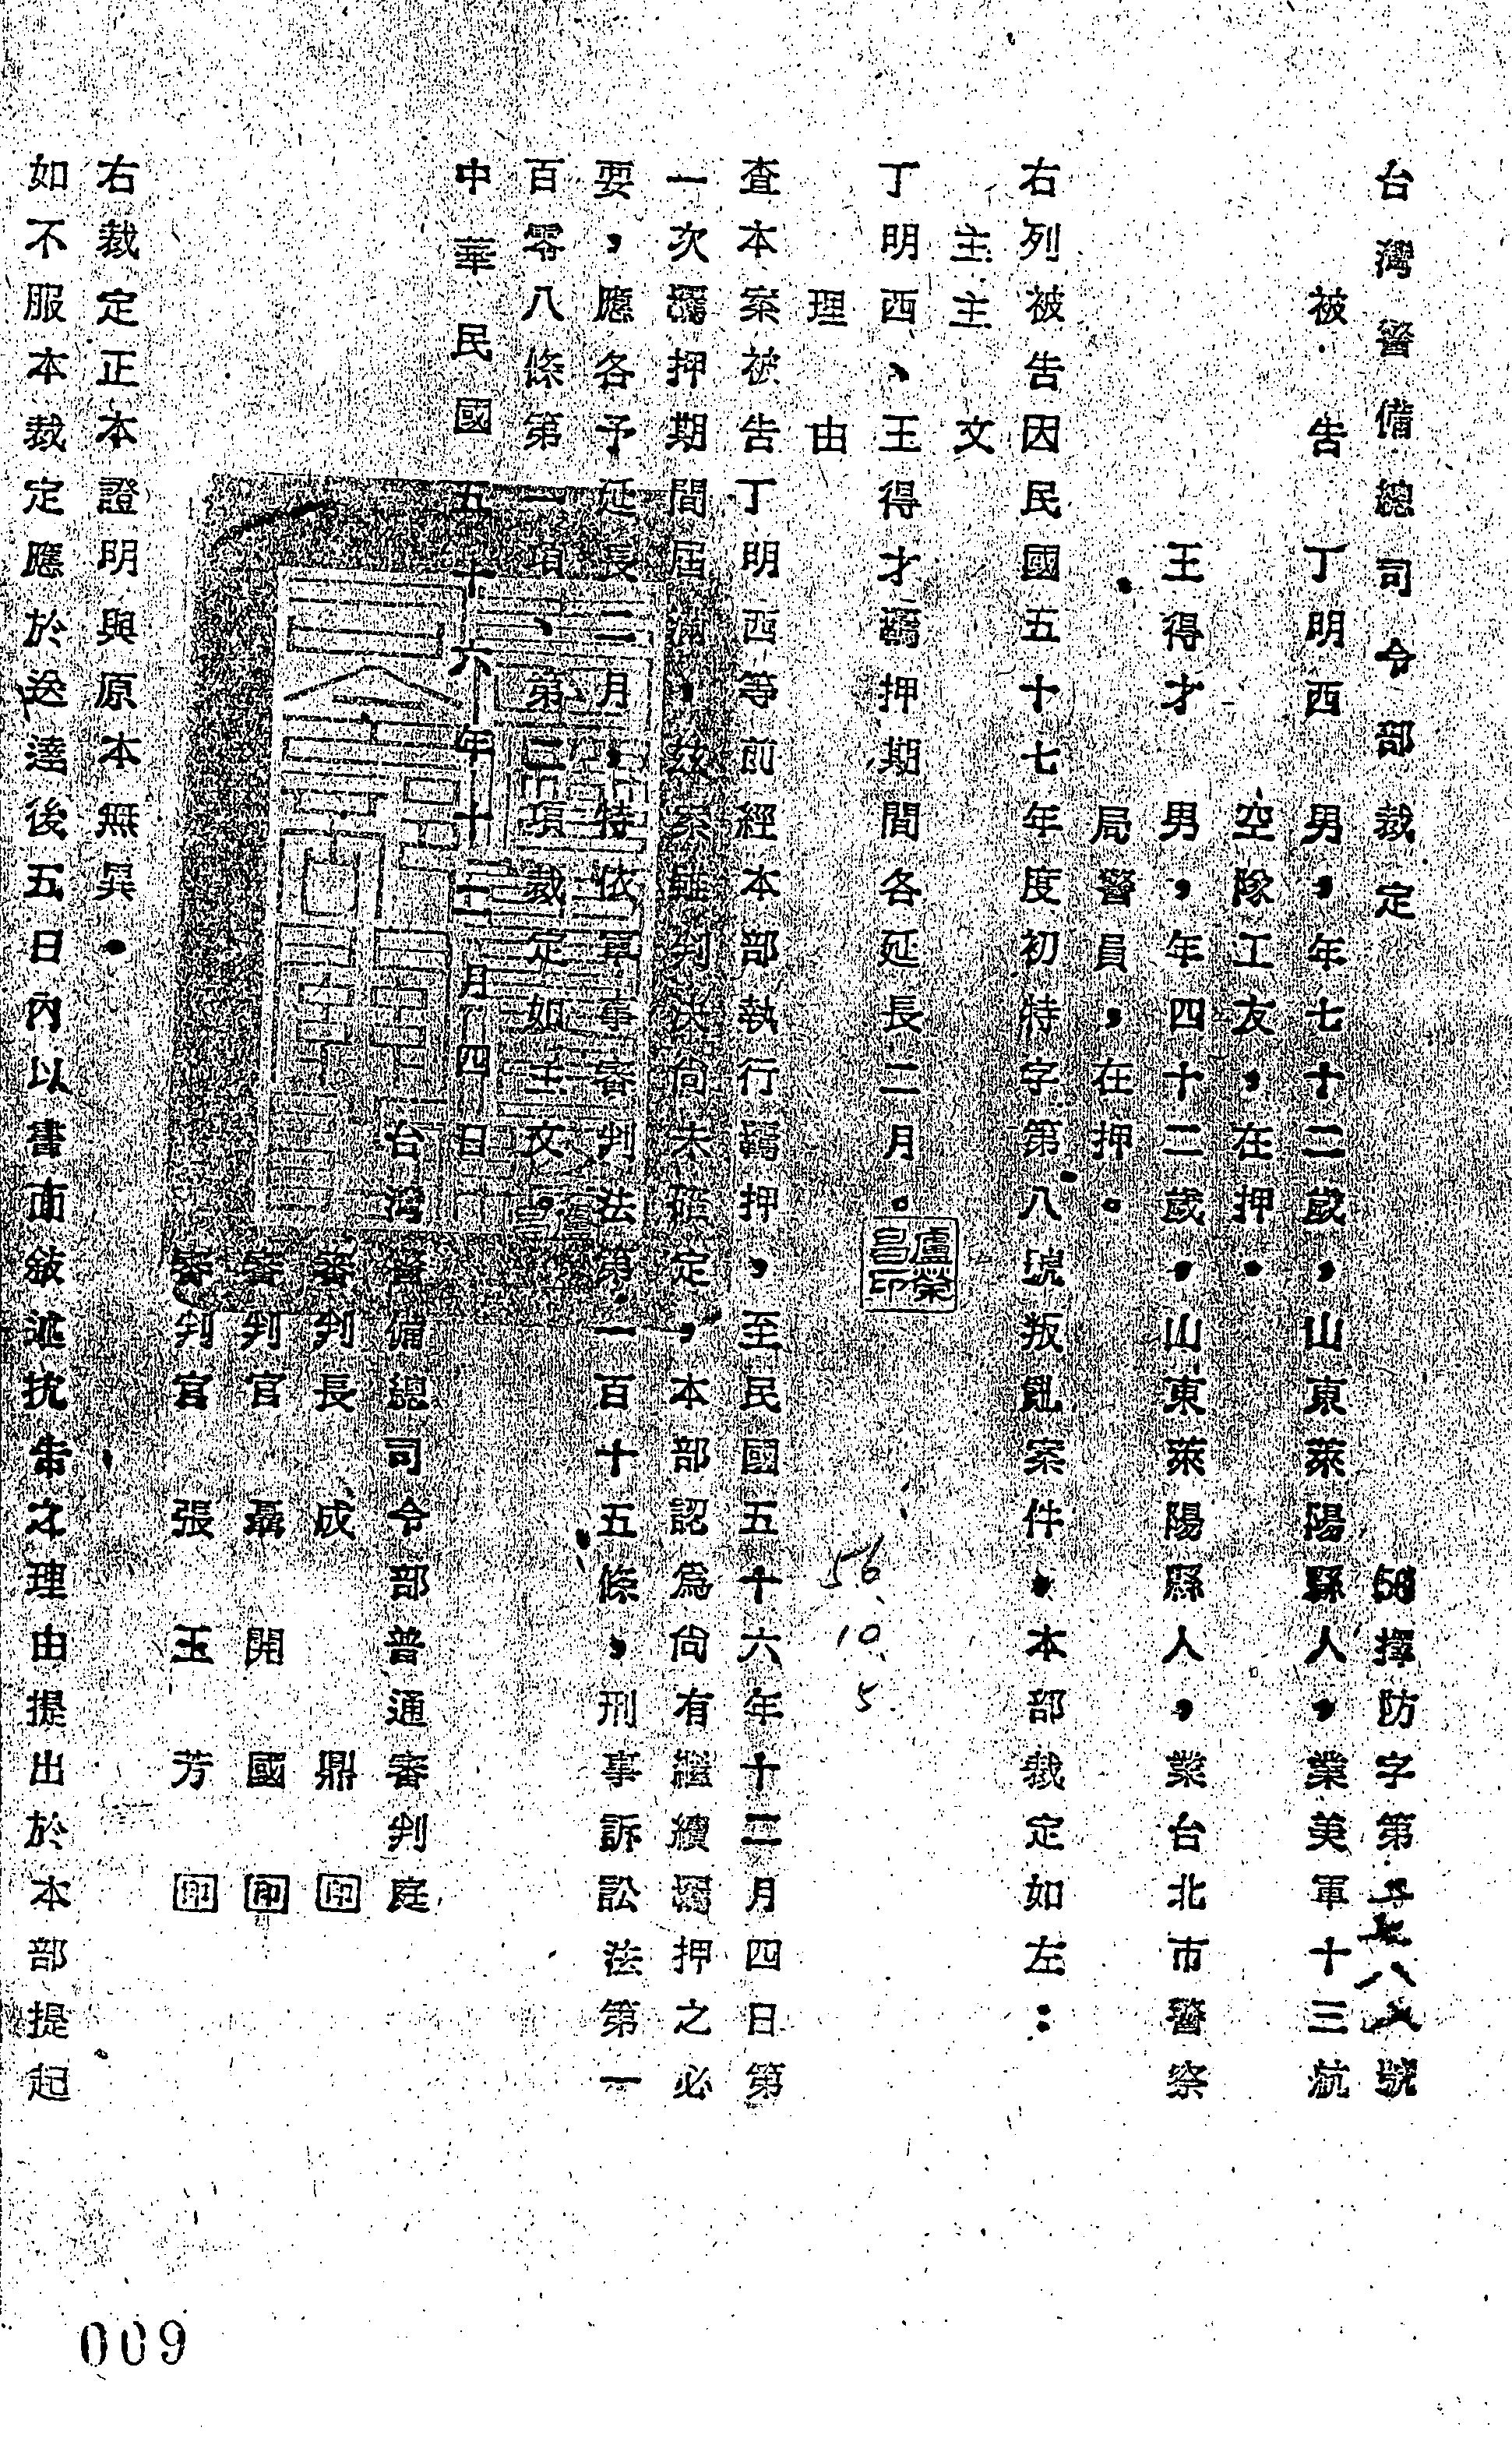 台灣警備總司令部裁定 56擇防字第 號
被告 丁明西 男，年七十二歲，山東萊陽縣人，業美軍十三航
空隊工友，在押。
王得才 男，年四十二歲，山東萊陽縣人，業台北市警察
局警員，在押。
右列被告因民國五十七年度初特字第八號叛亂案件，本部裁定如左：
主主文
丁明西、王得才羈押期間各延長二月。
盧榮昌印
理由
56 10 5
查本案被告丁明西等前經本部執行羈押，至民國五十六年十二月四日第
一次羈押期間屆滿，茲案雖判決尚未確定，本部認為尚有繼續羈押之必
要，應各予延長二月，特依軍事審判法第一百十五條，刑事訴訟法第一
百零八條第一項、第二項裁定如主文。
中華民國五十六年十二月四日
台灣警備總司令部普通審判庭
審判長 成鼎 印
審判官 聶開國 印
審判官 張玉芳 印
右裁定正本證明與原本無異。
如不服本裁定應於送達後五日內以書面敘述抗告之理由提出於本部提起
009